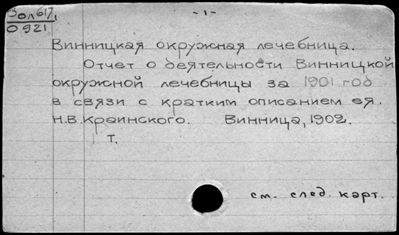 Зол617,
0921
- 1 -
Винницкая окружная лечебница.
Отчет о деятельности Винницкой
окружной лечебницы за 1901 год
в связи с кратким описанием ея.
Н.В.Краинского. Винница, 1902.
т.
см. след. карт.